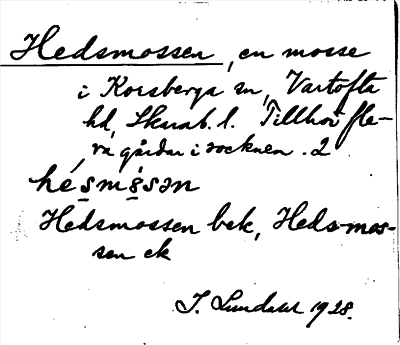 Hedsmossen, en mosse
i Korsberga sn, Vartofta
hd, Skarab. l. Tillhör fle-
ra gårdar i socknen. 2
hésmòsən
Hedsmossen bek, Hedsmos-
sen ek
J. Lundahl 1928.